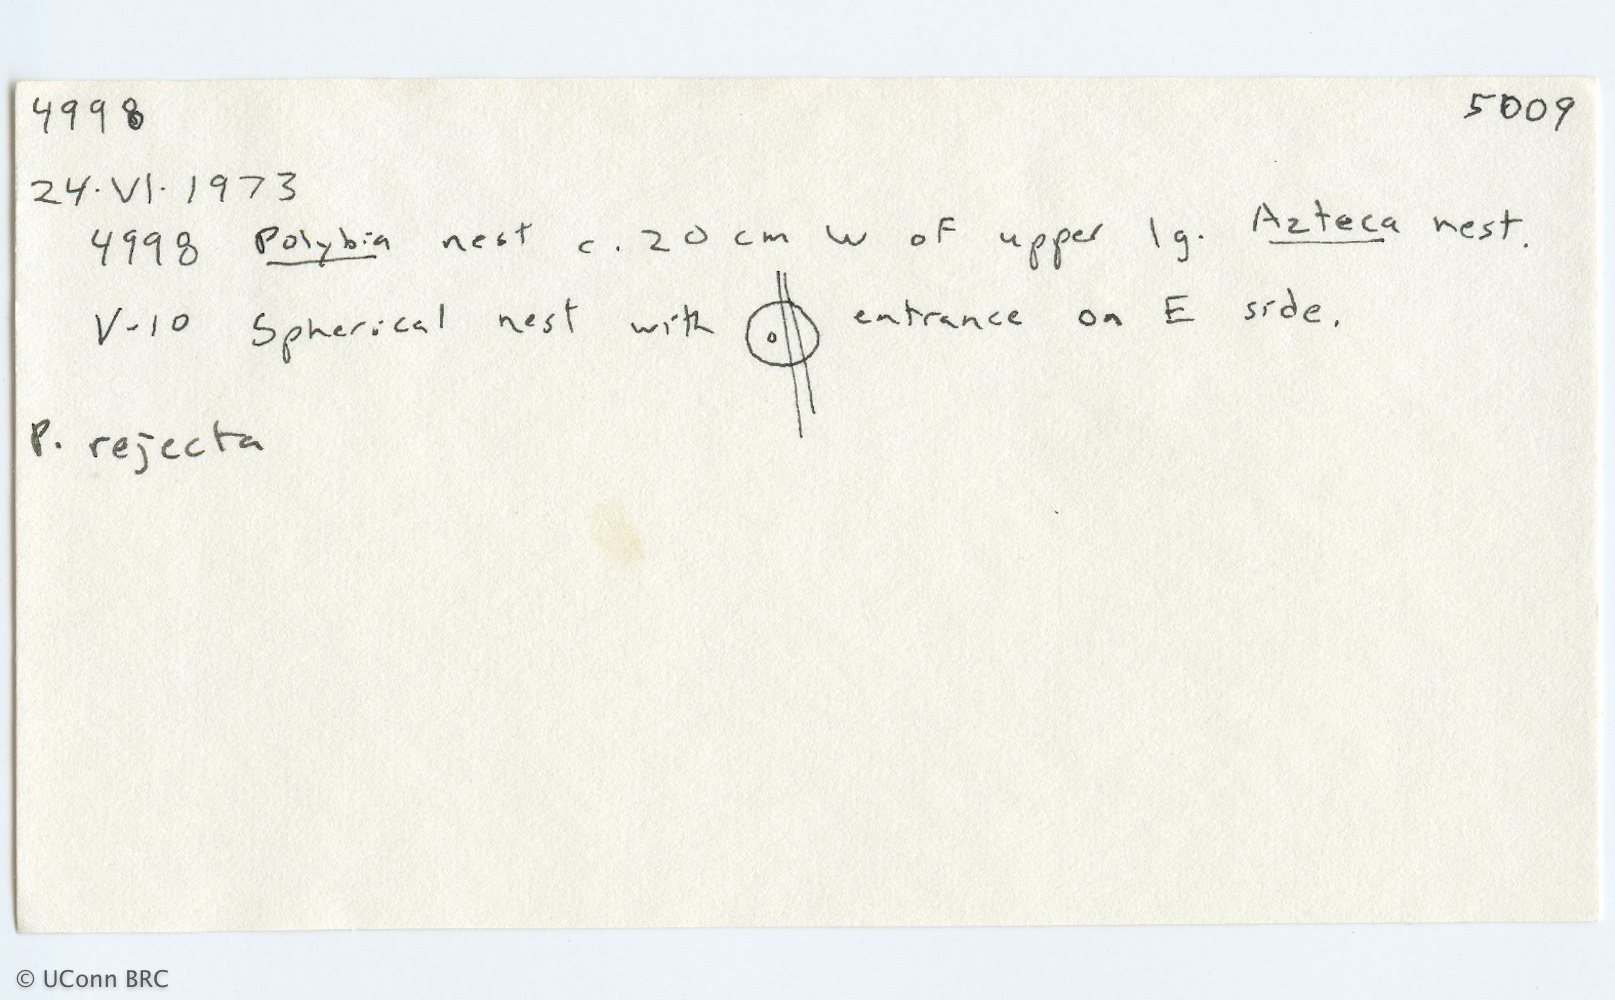 4998 5009
24.VI.1973
4998 Polybia nest c. 20 cm W of upper lg. Azteca nest.
V-10 Spherical nest with entrance on E side.
P. rejecta
© UConn BRC